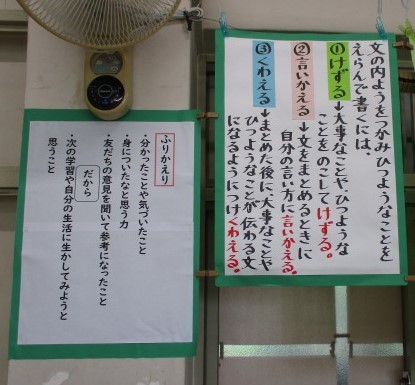 文の内ようをつかみひつようなことを
えらんで書くには、
①けずる→大事なことや、ひつような
ことをのこしてけずる。
②言いかえる→文をまとめるときに
自分の言い方に言いかえる。
③くわえる→まとめた後に、大事なことや
ひつようなことが伝わる文
になるようにつけくわえる。
ふりかえり
・分かったことや気づいたこと
・身についたなと思う力
・友だちの意見を聞いて参考になったこと
だから
・次の学習や自分の生活に生かしてみようと
思うこと